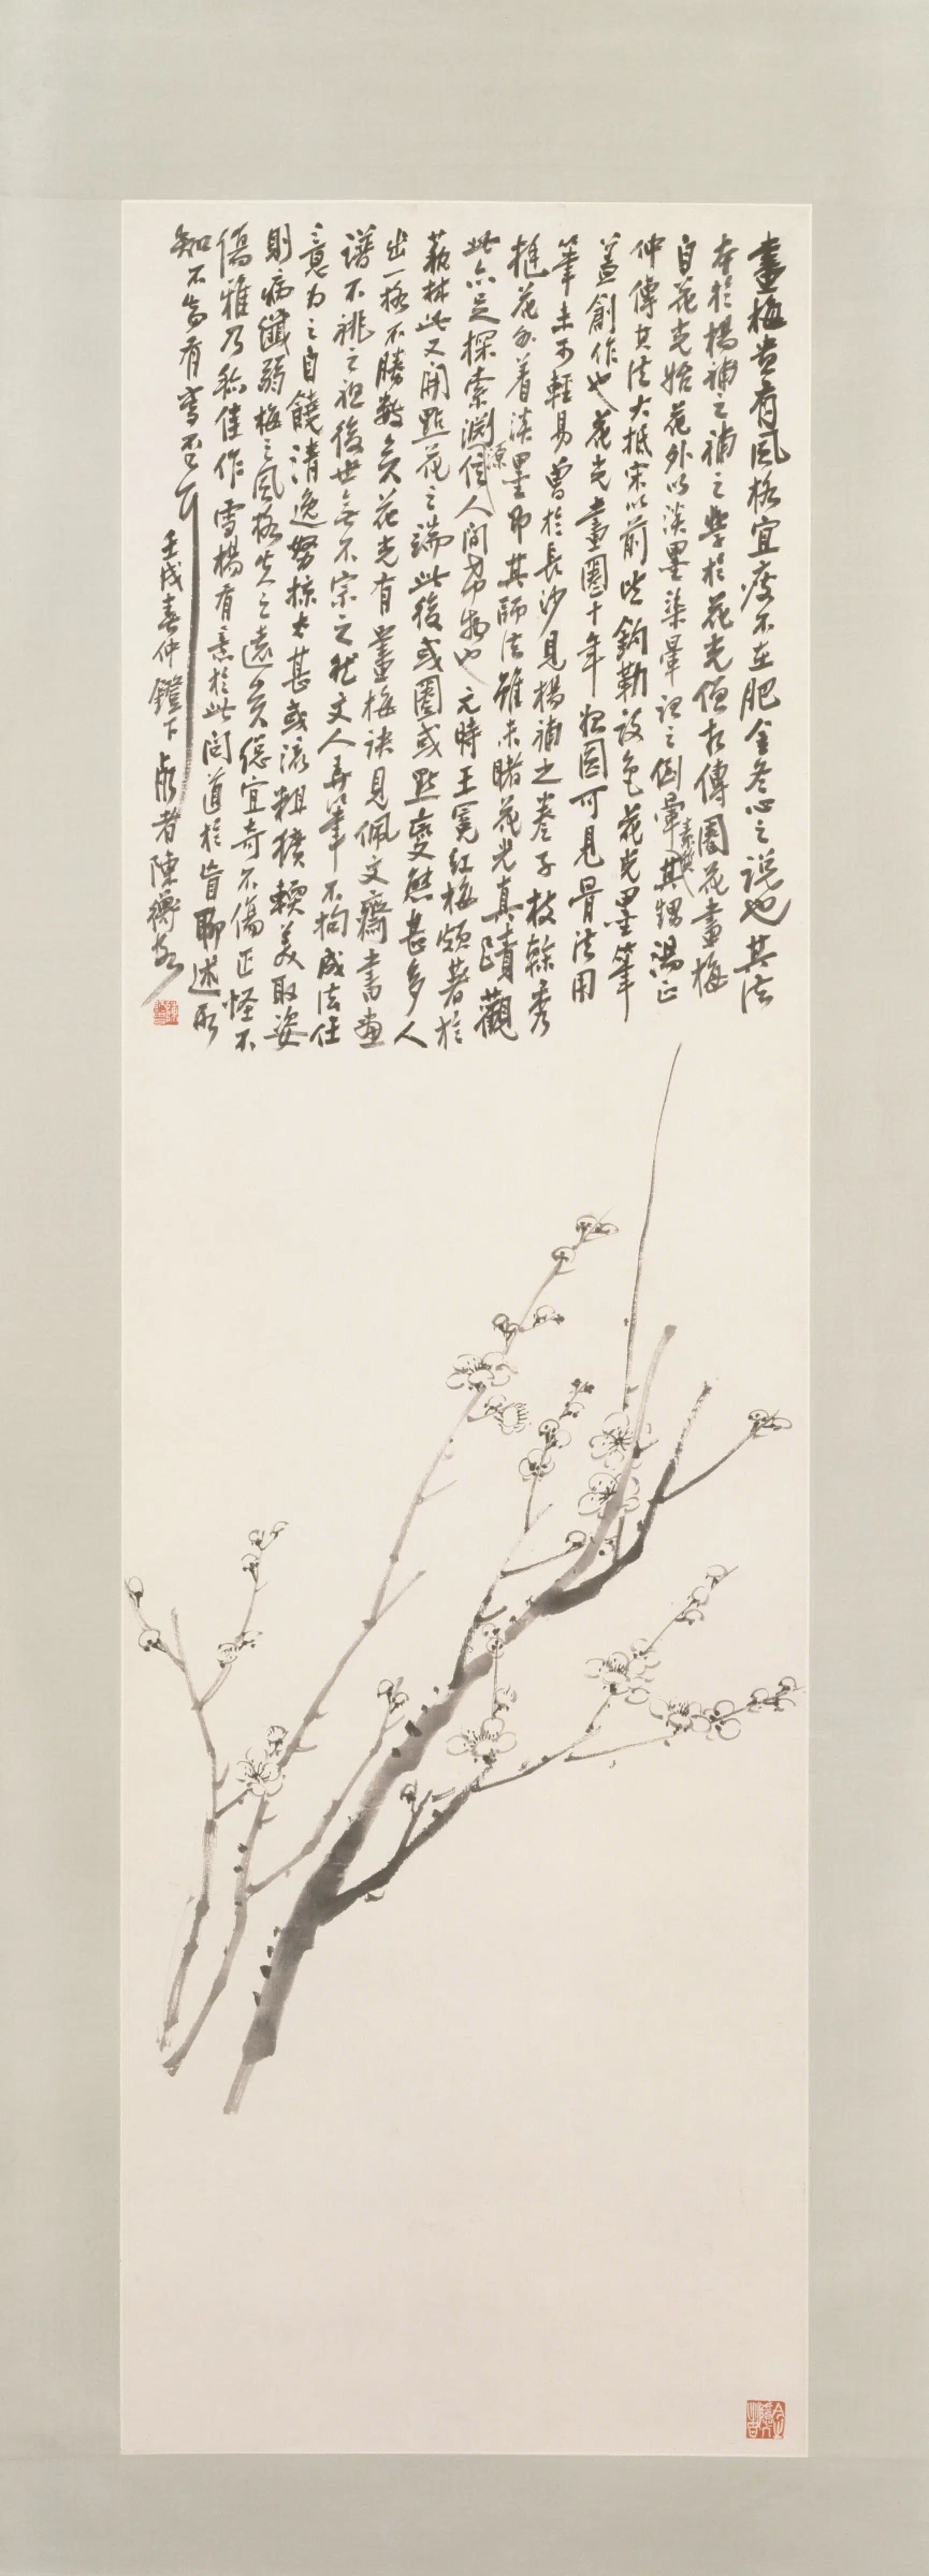 畫梅貴有風格宜瘦不在肥金冬心之說也其法
本於楊補之補之學於花光僧相傳圈花畫梅
自花光始花外以淡墨染暈記之倒暈素質其甥湯正
仲傳其法大抵宋以前皆鈎勒設色花光墨筆
蓋創作也花光畫圈十年始圓可見骨法用
筆未可輕易曾於長沙見楊補之卷子枝榦秀
挺花外着淡墨即其師法雖未睹花光真蹟觀
此亦足探索淵源信人間希物也元時王冕紅梅頗著於
藝林此又開點花之端此後或圈或點變態甚多人
出一格不勝數矣花光有畫梅訣見佩文齋書畫
譜不祧之祖後世無不宗之然文人弄筆不拘成法任
意為之自饒清逸努掠太甚或流粗獷輭美取姿
則病纖弱梅之風格失之遠矣總宜奇不傷正怪不
傷雅乃稱佳作雪楊有意於此問道於盲聊述所
知不知有當否耳
壬戌春仲鐙下 師者陳衡恪